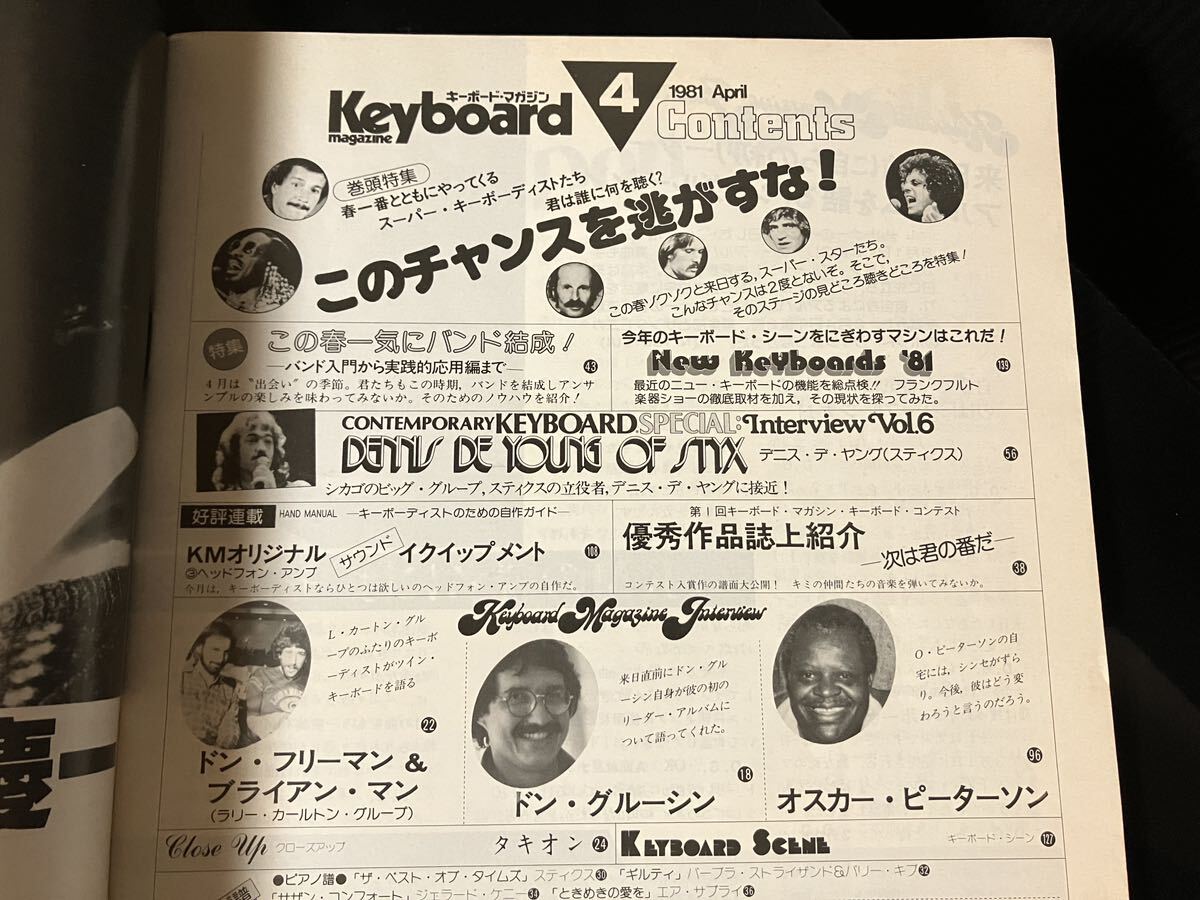 キーボード・マガジン
Keyboard
magazine
4
1981 April
Contents
巻頭特集
春一番とともにやってくる
スーパー・キーボーディストたち
君は誰に何を聴く?
このチャンスを逃がすな!
この春ゾクゾクと来日する,スーパー・スターたち。
こんなチャンスは2度とないぞ。そこで,
そのステージの見どころ聴きどころを特集!
特集
この春一気にバンド結成!
—バンド入門から実践的応用編まで—
43
4月は“出会い”の季節。君たちもこの時期,バンドを結成しアンサ
ンブルの楽しみを味わってみないか。そのためのノウハウを紹介!
今年のキーボード・シーンをにぎわすマシンはこれだ!
New Keyboards '81
139
最近のニュー・キーボードの機能を総点検!! フランクフルト
楽器ショーの徹底取材を加え,その現状を探ってみた。
CONTEMPORARY KEYBOARD SPECIAL: Interview Vol.6
DENNIS DE YOUNG OF STYX
デニス・デ・ヤング(スティクス)
56
シカゴのビッグ・グループ,スティクスの立役者,デニス・デ・ヤングに接近!
好評連載
HAND MANUAL —キーボーディストのための自作ガイド—
KMオリジナル サウンド イクイップメント
108
③ヘッドフォン・アンプ
今月は,キーボーディストならひとつは欲しいのヘッドフォン・アンプの自作だ。
第1回キーボード・マガジン・キーボード・コンテスト
優秀作品誌上紹介
—次は君の番だ—
38
コンテスト入賞作の譜面大公開! キミの仲間たちの音楽を弾いてみないか。
Keyboard Magazine Interview
L・カートン・グル
ープのふたりのキーボ
ーディストがツイン・
キーボードを語る
22
ドン・フリーマン &
ブライアン・マン
(ラリー・カールトン・グループ)
来日直前にドン・グル
ーシン自身が彼の初の
リーダー・アルバムに
ついて語ってくれた。
18
ドン・グルーシン
O・ピーターソンの自
宅には,シンセがずら
り。今後,彼はどう変
わろうと言うのだろう。
96
オスカー・ピーターソン
Close Up クローズアップ
タキオン 24
KEYBOARD SCENE
キーボード・シーン 127
●ピアノ譜●「ザ・ベスト・オブ・タイムズ」スティクス 30 「ギルティ」バーブラ・ストライザンド&バリー・ギブ 32
「サザン・コンフォート」ジェラード・ケニー 34 「ときめきの愛を」エア・サプライ 36
譜
慶一